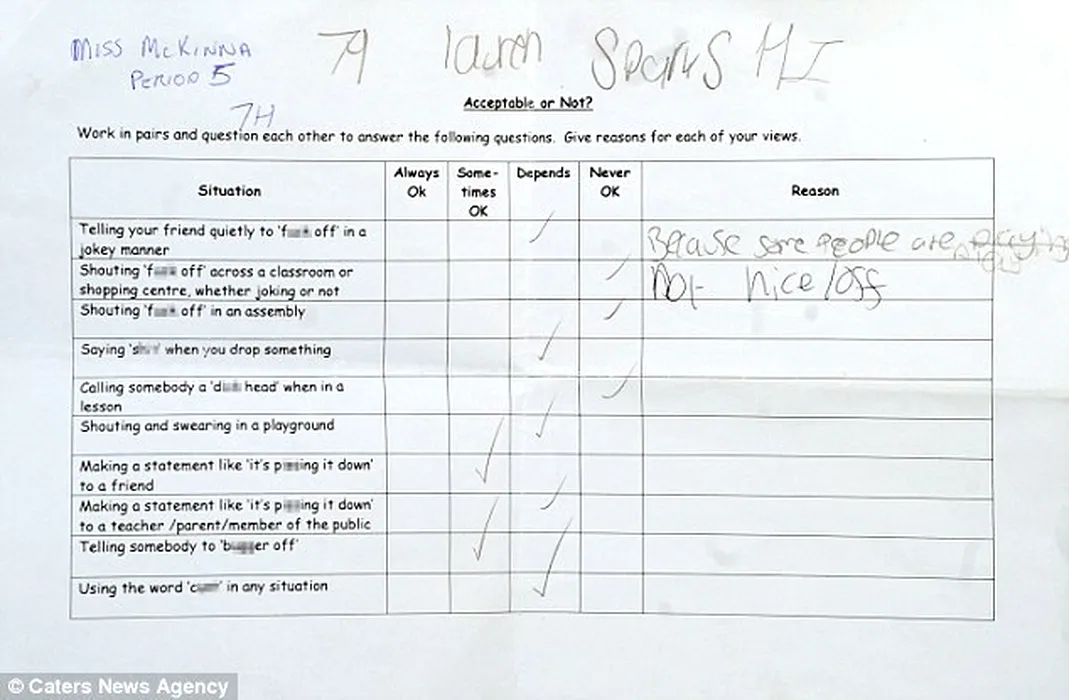 MISS MCKINNA
PERIOD 5
7H
Acceptable or Not?
Work in pairs and question each other to answer the following questions. Give reasons for each of your views.
Situation
Always Ok
Some-times OK
Depends
Never OK
Reason
Telling your friend quietly to 'f off' in a
jokey manner
Because some people are
Shouting 'f off' across a classroom or
shopping centre, whether joking or not
Not nice/off
Shouting 'f off' in an assembly
Saying 's' when you drop something
Calling somebody a 'd head' when in a
lesson
Shouting and swearing in a playground
Making a statement like 'it's p ing it down'
to a friend
Making a statement like 'it's p ing it down'
to a teacher /parent/member of the public
Telling somebody to 'b er off'
Using the word 'c' in any situation
© Caters News Agency